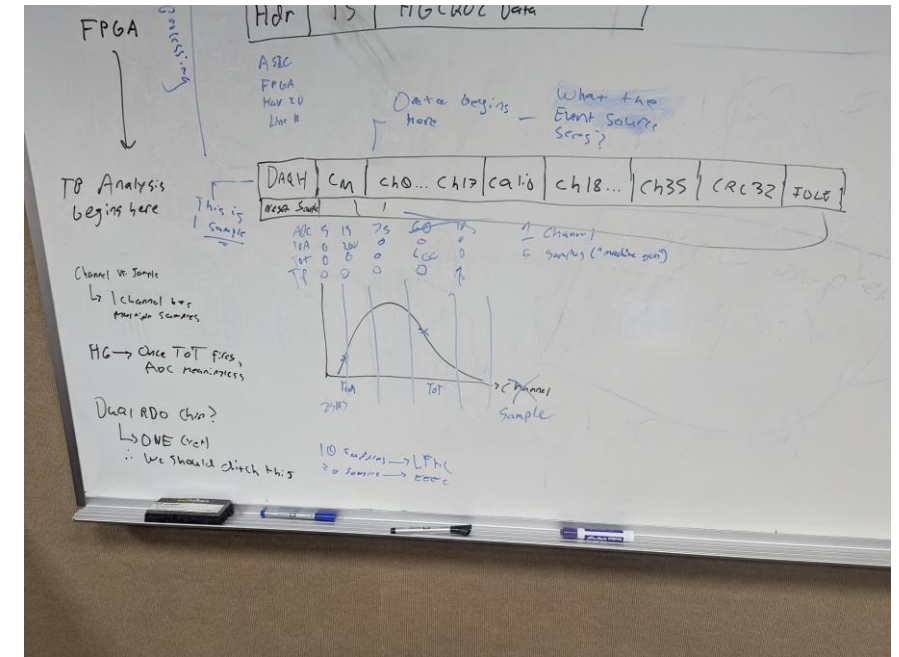 FPGA
Hdr TS HGCROC Data
ASIC
FPGA
Half ID
Line #
Data begins
here
What the
Event Source
Sees?
TB Analysis
begins here
This is
1 sample
DAQH CM Ch0... Ch17 Calib Ch18... Ch35 CRC32 IDLE
ADC 5 15 75 60
TOA 0 200 0 0 0
TOT 0 0 0 0
1 Channel
5 samples ("machine gun")
Channel vs. Sample
↳ 1 channel has
multiple samples
HG → Once ToT fires,
ADC meaningless
ToA ToT
Channel
Sample
Dual RDO Chn?
↳ ONE
∴ we should ditch this
10 samples → LFHC
20 samples → EEEC